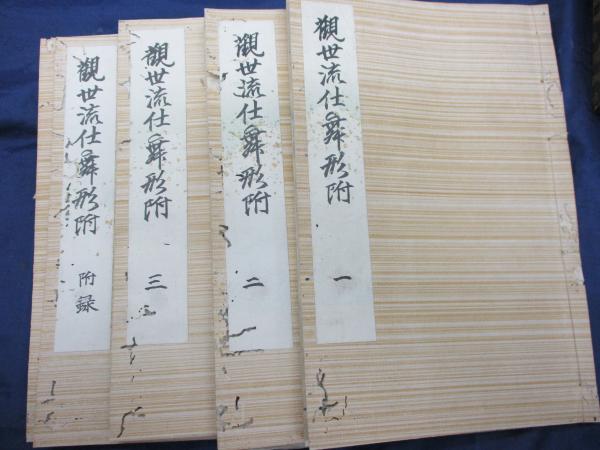 觀世流仕舞形附 一
觀世流仕舞形附 二
觀世流仕舞形附 三
觀世流仕舞形附 附録